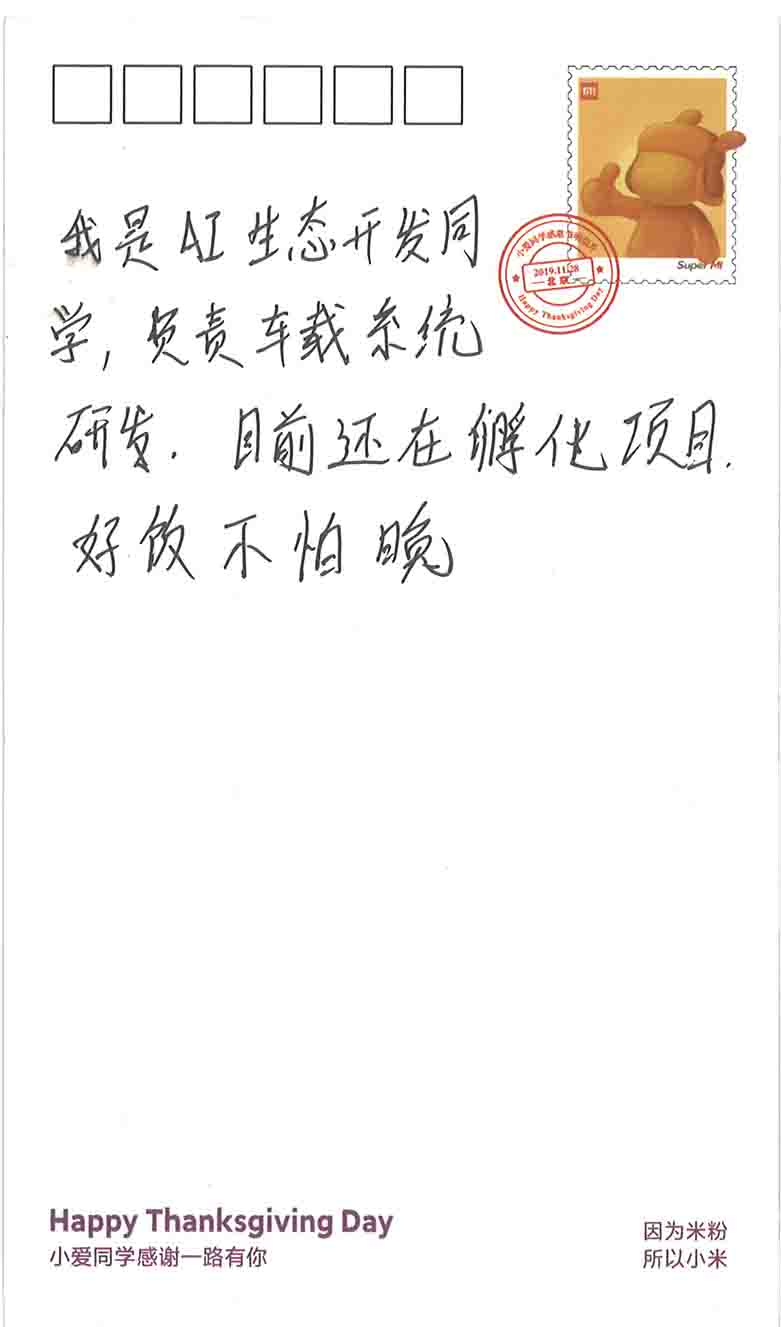 Super Mi
小爱同学感恩节明信片
2019.11.28
北京
Happy Thanksgiving Day
我是AI生态开发同
学,负责车载系统
研发. 目前还在孵化项目.
好饭不怕晚
Happy Thanksgiving Day
小爱同学感谢一路有你
因为米粉
所以小米